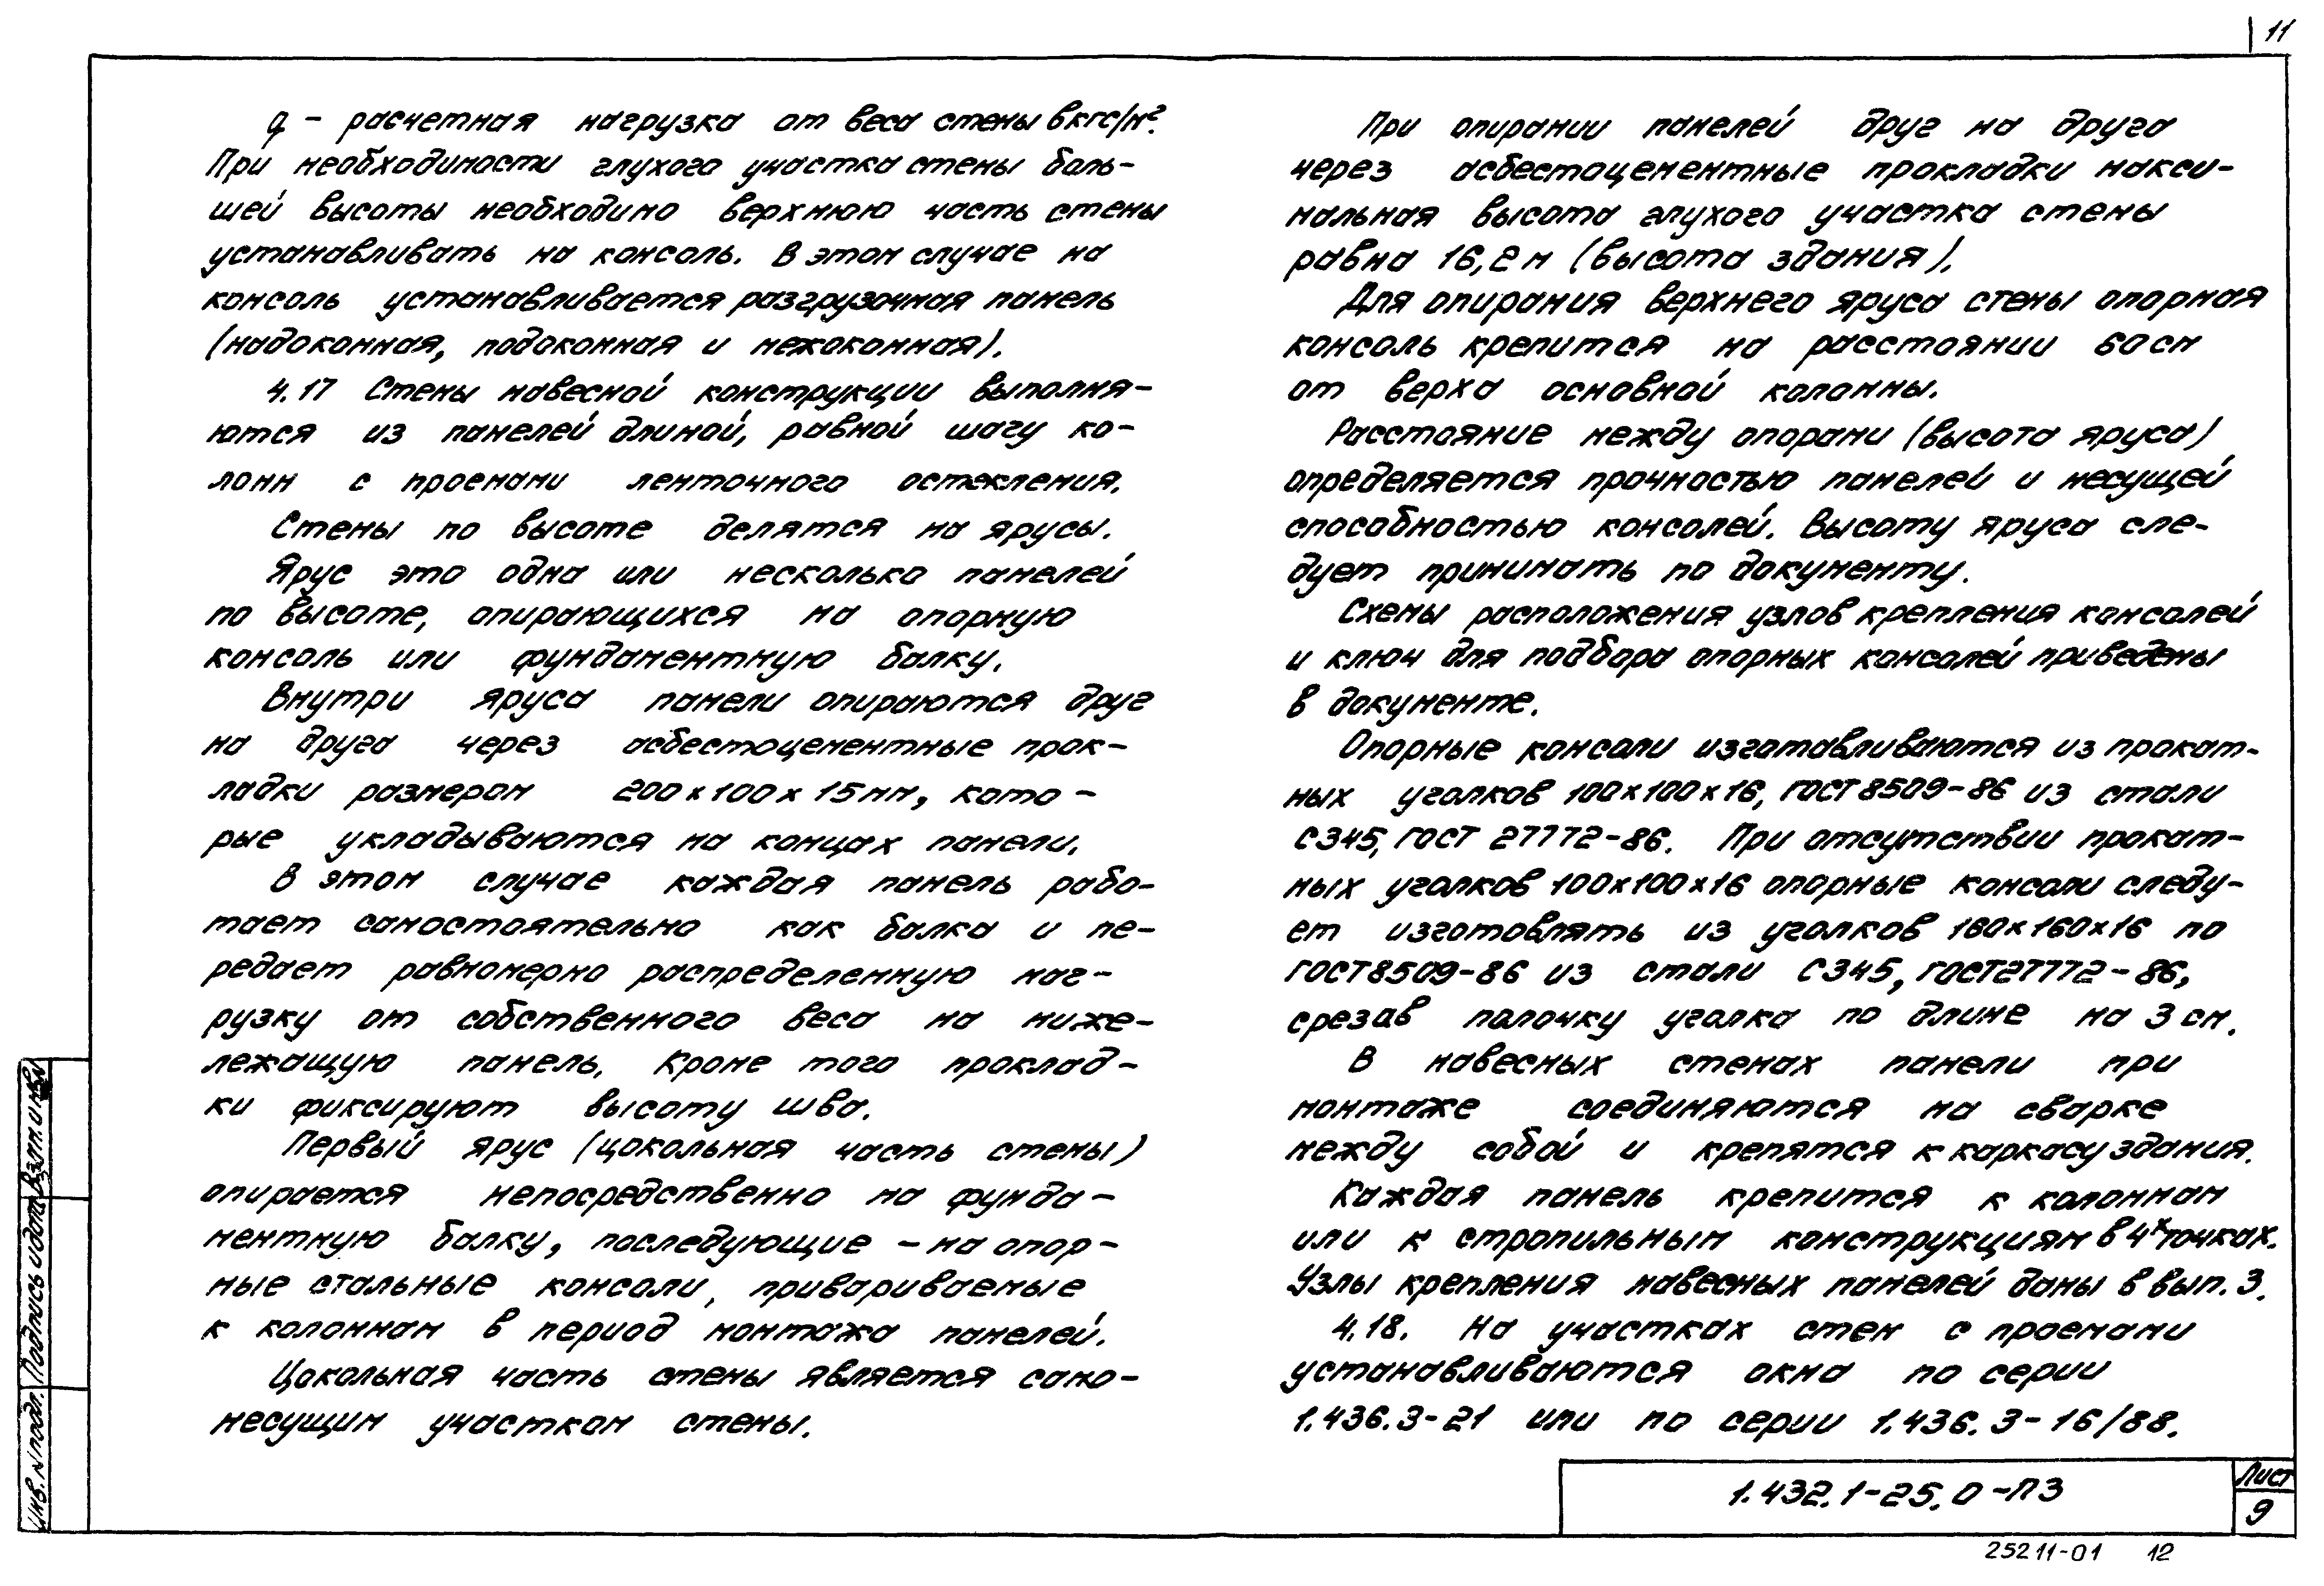 11
q – расчетная нагрузка от веса стены в кгс/м².
При необходимости глухого участка стены боль-
шей высоты необходимо верхнюю часть стены
устанавливать на консоль. В этом случае на
консоль устанавливается разгрузочная панель
(надоконная, подоконная и межоконная).
4.17 Стены навесной конструкции выполня-
ются из панелей длиной, равной шагу ко-
лонн с проемами ленточного остекления.
Стены по высоте делятся на ярусы.
Ярус это одна или несколько панелей
по высоте, опирающихся на опорную
консоль или фундаментную балку.
Внутри яруса панели опираются друг
на друга через асбестоцементные прок-
ладки размером 200×100×15мм, кото-
рые укладываются на концах панели.
В этом случае каждая панель рабо-
тает самостоятельно как балка и пе-
редает равномерно распределенную наг-
рузку от собственного веса на ниже-
лежащую панель. Кроме того проклад-
ки фиксируют высоту шва.
Первый ярус (цокольная часть стены)
опирается непосредственно на фунда-
ментную балку, последующие – на опор-
ные стальные консоли, привариваемые
к колоннам в период монтажа панелей.
Цокольная часть стены является само-
несущим участком стены.
При опирании панелей друг на друга
через асбестоцементные прокладки макси-
мальная высота глухого участка стены
равна 16,2м (высота здания).
Для опирания верхнего яруса стены опорная
консоль крепится на расстоянии 60см
от верха основной колонны.
Расстояние между опорами (высота яруса)
определяется прочностью панелей и несущей
способностью консолей. Высоту яруса сле-
дует принимать по документу.
Схемы расположения узлов крепления консолей
и ключ для подбора опорных консолей приведены
в документе.
Опорные консоли изготавливаются из прокат-
ных уголков 100×100×16, ГОСТ 8509-86 из стали
С345, ГОСТ 27772-86. При отсутствии прокат-
ных уголков 100×100×16 опорные консоли следу-
ет изготовлять из уголков 160×160×16 по
ГОСТ 8509-86 из стали С345, ГОСТ 27772-86,
срезав полочку уголка по длине на 3 см.
В навесных стенах панели при
монтаже соединяются на сварке
между собой и крепятся к каркасу здания.
Каждая панель крепится к колоннам
или к стропильным конструкциям в 4х точках.
Узлы крепления навесных панелей даны в вып. 3.
4.18. На участках стен с проемами
устанавливаются окна по серии
1.436.3-21 или по серии 1.436.3-16/88.
Инв. N подл.
Подпись и дата
Взам. инв N
1.432.1-25.0-ПЗ
Лист
9
25211-01 12